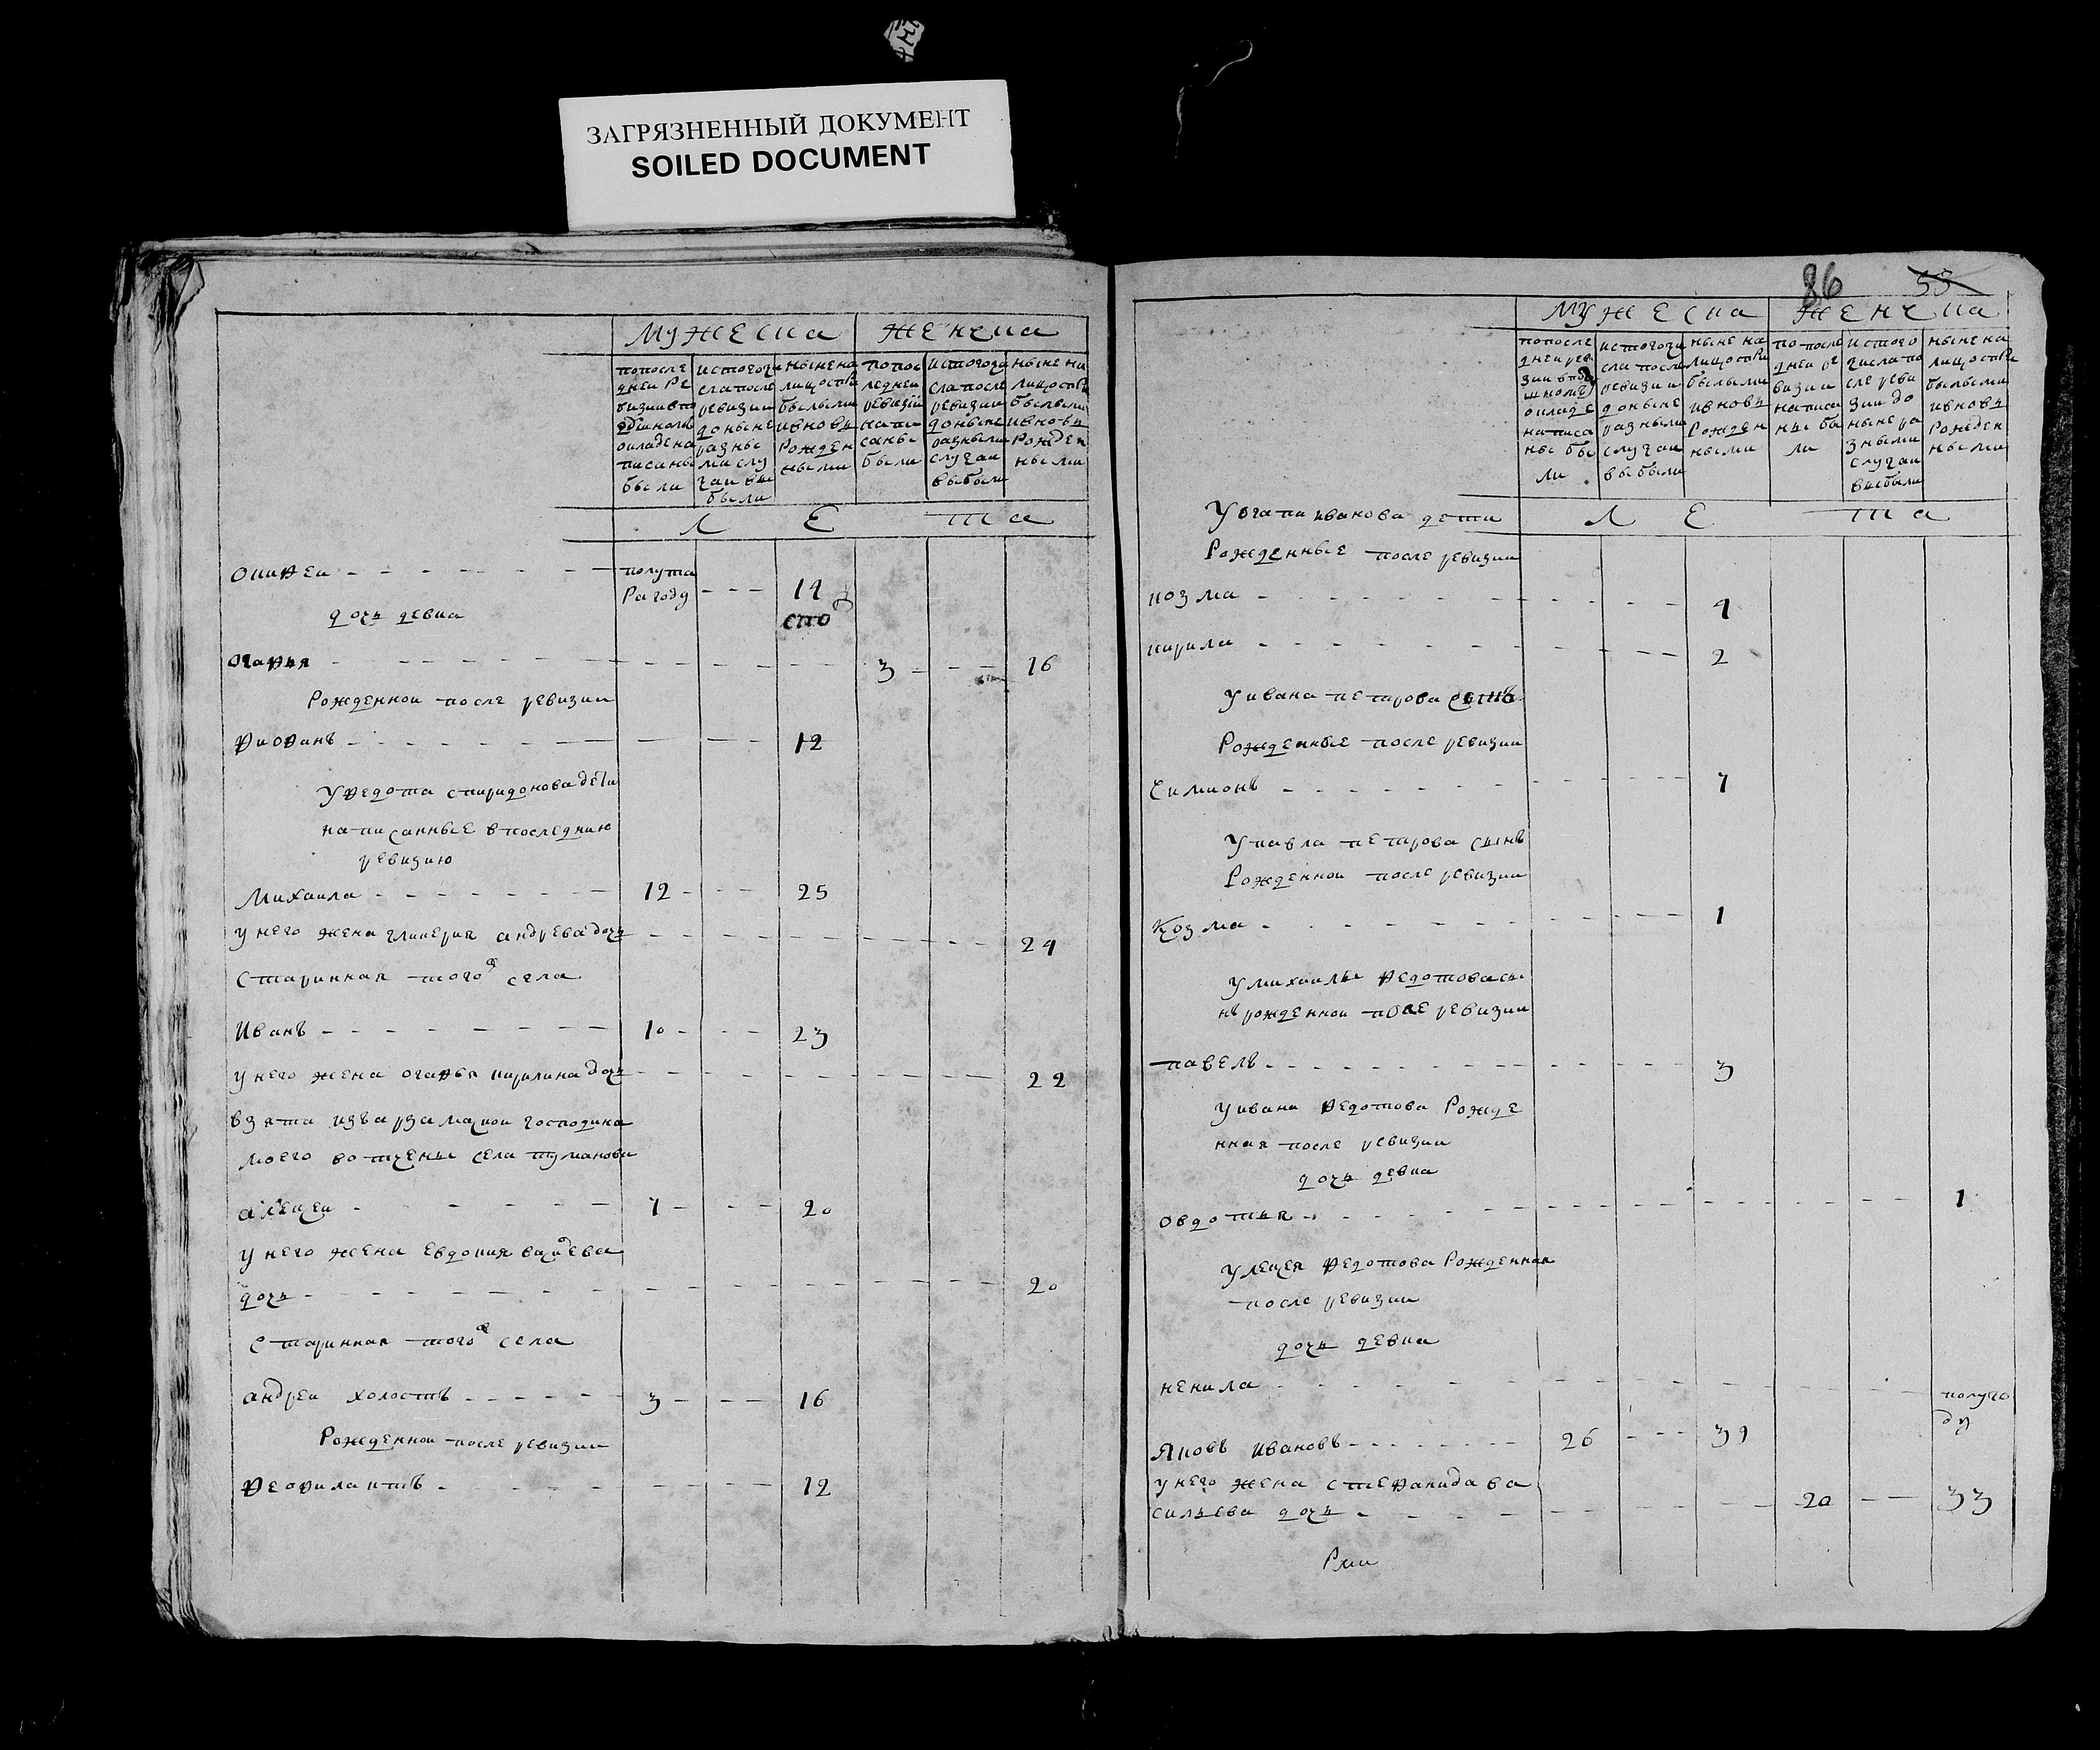 ЗАГРЯЗНЕННЫЙ ДОКУМЕНТ
SOILED DOCUMENT
Мужеска Женска
попосле
дней ре
визии впо
душномъ
окладе на
писаны
были
истогочи
сла после
ревизии
доныне
разны
ми слу
чаи вы
были
ныне на
лицо стѣ
былыми
ивновь
рожден
ными
попос
ледней
ревизiи
напи
саны
были
истогочи
сла после
ревизии
доныне
разными
случаи
выбыли
ныне на
лицо стѣ
былыми
ивновь
рожден
ными
Л Е та
Окифеи полута
Ра году 14
дочь девка сто
Огафья 3 16
Рожденнои после ревизии
Фиофанъ 12
У федота спиридонова дети
написанные в последнию
ревизию
Михаила 12 25
у него жена гликерия андрева дочь 24
старинная того села
Иванъ 10 23
у него жена огафья кирилина дочь 22
взята изъарзамаской господина
моего вотчены села туманова
алексеи 7 20
у него жена Евдокия
дочь 20
старинная того села
андреи холостъ 3 16
Рожденнои после ревизии
Феофилактъ 12
86 53
Мужеска Женска
попосле
дней рев
зии впод
шномъ
окладе
написа
ны бы
ли
истогочи
сла после
ревизии
доныне
разными
случаи
выбыли
ныне на
лицо стѣ
былыми
ивновь
Рожден
ными
по после
дней ре
визии
написа
ны бы
ли
истого
числа по
сле реви
зии до
ныне ра
зными
случаи
выбыли
ныне на
лицо стѣ
былыми
ивновь
Рожден
ными
Л Е та
иванова дети
Рожденные после ревизии
козма 4
кирила 2
У ивана петрова
Рожденные после ревизии
Симионъ 7
У павла петрова сынъ
Рожденнои после ревизии
Козма 1
У михаилы Федотова сы
нъ рожденнои после ревизии
павелъ 3
У ивана Федотова Рожде
нная после ревизии
дочь девка
овдотья 1
У Лексея Федотова Рожденная
после ревизии
дочь девка
ненила полуго
ду
Яковъ Ивановъ 26 39
у него жена стефанида ва
сильева дочь 20 33